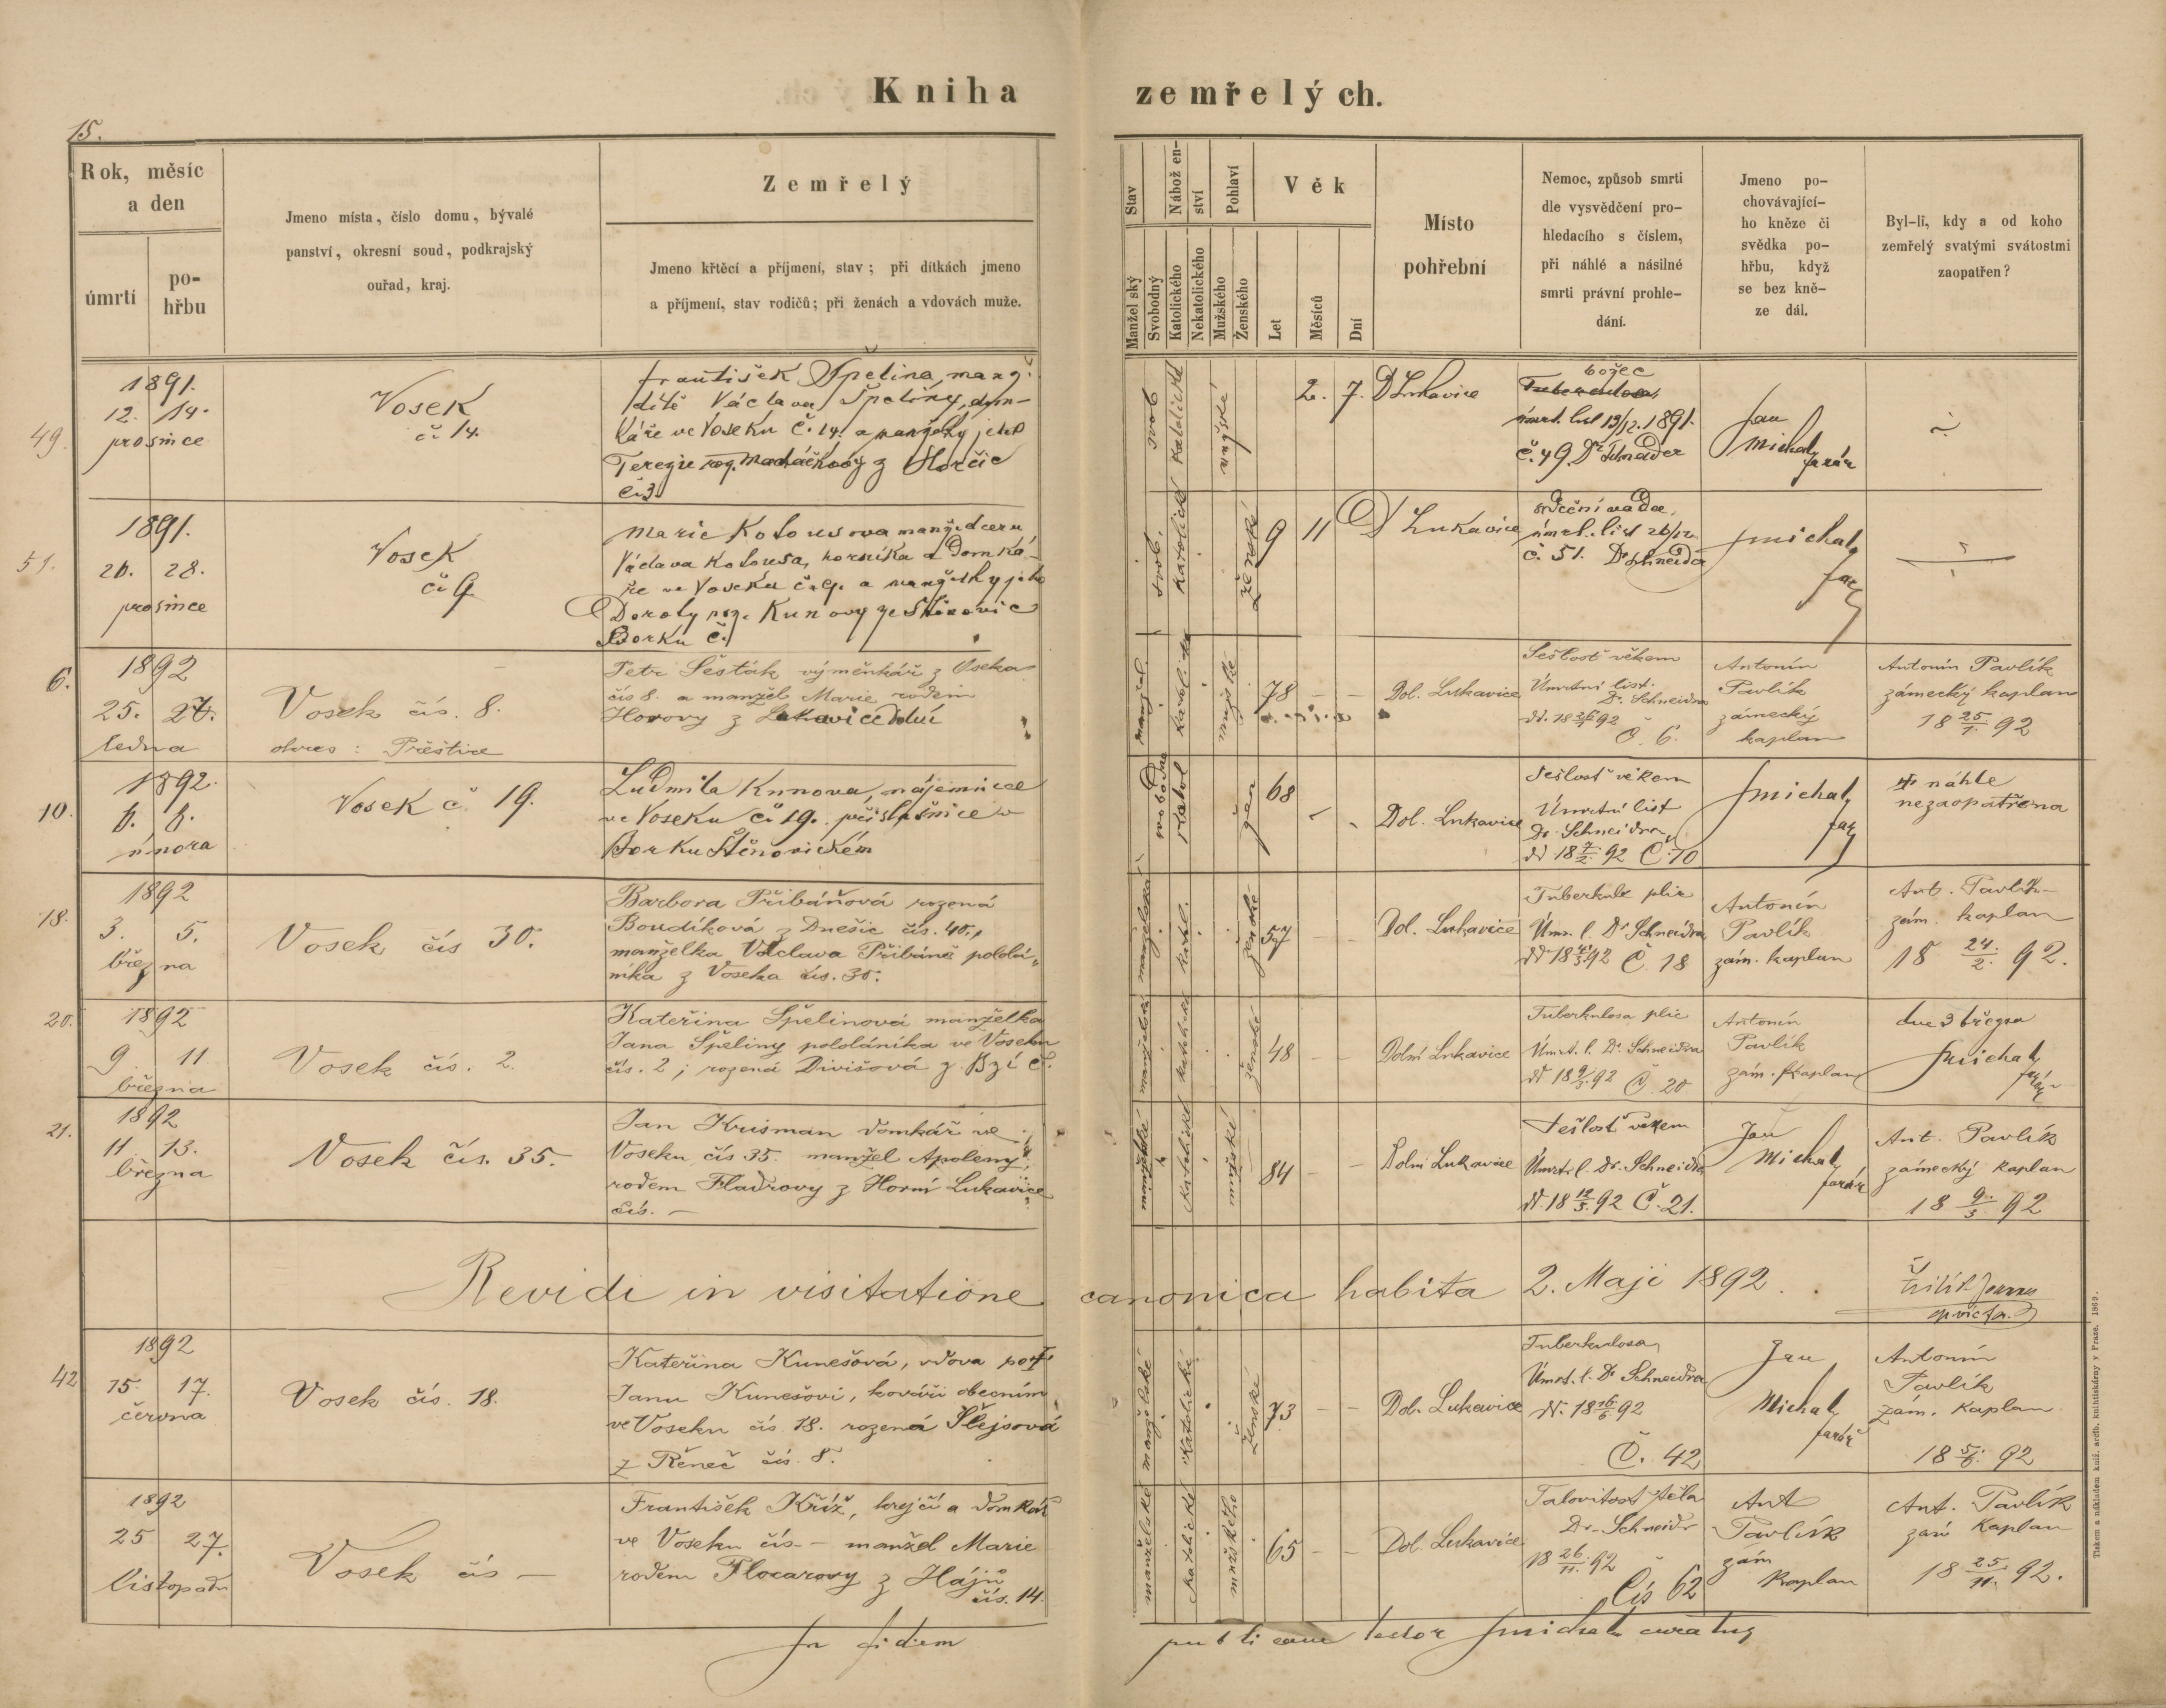 Kniha zemřelých.
15.
Rok, měsíc
a den
úmrtí
po-
hřbu
Jmeno místa, číslo domu, bývalé
panství, okresní soud, podkrajský
ouřad, kraj.
Zemřelý
Jmeno křtěcí a příjmení, stav; při dítkách jmeno
a příjmení, stav rodičů; při ženách a vdovách muže.
Stav
Manžel ský
Svobodný
Nábožen-
ství
Katolického
Nekatolického
Pohlaví
Mužského
Ženského
Věk
Let
Měsíců
Dní
Místo
pohřební
Nemoc, způsob smrti
dle vysvědčení pro-
hledacího s číslem,
při náhlé a násilné
smrti právní prohle-
dání.
Jmeno po-
chovávající-
ho kněze či
svědka po-
hřbu, když
se bez kně-
ze dál.
Byl-li, kdy a od koho
zemřelý svatými svátostmi
zaopatřen?
49.
1891.
12. 14.
prosince
Vosek
č. 14.
František Špelina, manž.
dítě Václava Špeliny, dom-
káře ve Voseku č. 14. a manželky jeho
Terezie roz. Maďáčkovy z Horčic
č. 3.
svob
katolické
mužské
2. 7.
D Lukavice
božec
Tuberculosa
úmrt. list 13/12. 1891.
č. 49. Dr Schneider
Jan
Michal
farář
51.
1891.
26. 28.
prosince
Vosek
č. 9
Marie Kotousova manž. dcera
Václava Kotousa, horníka a domká-
ře ve Voseku č. 9. a manželky jeho
Doroty roz. Kunovy ze Štěnovic
Borku č.
svob.
katolické
ženské
9 11
D Lukavice
srdeční vada,
úmrt. list 26/12
č. 51. Dr Schneider
JMichal
far
6.
1892
25. 27.
ledna
Vosek čís. 8.
okres: Přeštice
Petr Šesták výměnkář z Oseka
čís 8. a manžel Marie rodem
Horovy z Lukavice Dolní
manžel.
katolické
mužské
78 – –
Dol. Lukavice
Sešlosť věkem
Úmrtní list.
Dr. Schneidra
dd. 18 26/1 92
Č. 6.
Antonín
Pavlík
zámecký
kaplan
Antonín Pavlík
zámecký kaplan
18 25/1. 92
10.
1892.
6. 8.
února
Vosek č. 19.
Ludmila Kunova, nájemnice
ve Voseku č. 19. příslušnice v
Borku Štěnovickém
svobodné
katol
žen
68
Dol. Lukavice
Sešlosť věkem
Úmrtní list
Dr. Schneidra
dd 18 7/2. 92 Č. 10
JMichal
far
náhle
nezaopatřena
18.
1892
3. 5.
března
Vosek čís 30.
Barbora Přibáňová rozená
Boudíková z Dnešic čís. 40.,
manželka Václava Přibáně pololá-
níka z Voseka čís. 30.
manželská
katol.
ženské
57
Dol. Lukavice
Tuberkule plic
Úmr. l. Dr Schneidra
dd 18 4/3 92 Č. 18
Antonín
Pavlík
zám. kaplan
Ant. Pavlík
zám. kaplan
18 24./2. 92.
20.
1892
9. 11.
března
Vosek čís. 2.
Kateřina Špelinová manželka
Jana Špeliny pololáníka ve Voseku
čís. 2; rozená Divišová z Bzí č.
manželská
katolické
ženské
48 – –
Dolní Lukavice
Tuberkulosa plic
Úmrt. l. Dr. Schneidra
dd 18 9/3. 92 Č. 20
Antonín
Pavlík
zám. kaplan
dne 3 března
JMichal
farář
21.
1892
11 13.
března
Vosek čís. 35.
Jan Krisman domkář ve
Voseku čís 35. manžel Apoleny,
rodem Fladrovy z Horní Lukavice
čís. –
manželské
katolické
mužské
84 – –
Dolní Lukavice
Sešlosť věkem
Úmrt. l. Dr. Schneidra
dd. 18 12/3. 92 Č. 21.
Jan
Michal
farář
Ant. Pavlík
zámecký kaplan
18 9./3 92
Revidi in visitatione canonica habita 2. Maji 1892.
42
1892
15. 17.
června
Vosek čís. 18.
Kateřina Kunešová, vdova po †
Janu Kunešovi, kováři obecním
ve Voseku čís. 18. rozená Šlejsová
z Řeneč čís. 8.
manželské
katolické
ženské
73 – –
Dol. Lukavice
Tuberkulosa
Úmrt. l. Dr Schneidra
dd. 18 16/6 92
Č. 42
Jan
Michal
farář
Antonín
Pavlík
zám. kaplan
18 5/6. 92
1892
25 27.
listopadu
Vosek čís –
František Kříž, krejčí a domkář
ve Voseku čís – manžel Marie
rodem Flocarovy z Hájů
čís. 14.
manželské
katolické
mužského
65 – –
Dol. Lukavice
Dr. Schneidr
18 26/11. 92
Čís 62
Ant
Pavlík
zám
kaplan
Ant. Pavlík
zám kaplan
18 25/11. 92.
In fidem publicam testor JMichal curatus
Tiskem a nákladem kníž. arcib. knihtiskárny v Praze. 1869.